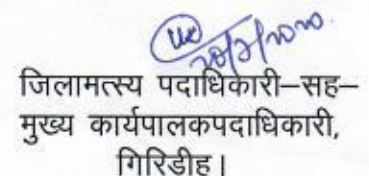 जिलामत्स्य पदाधिकारी–सह–
मुख्य कार्यपालकपदाधिकारी,
गिरिडीह।